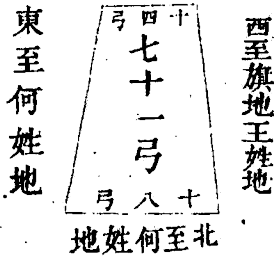 西至旗地王姓地
十四弓
七十一弓
十八弓
東至何姓地
北至何姓地